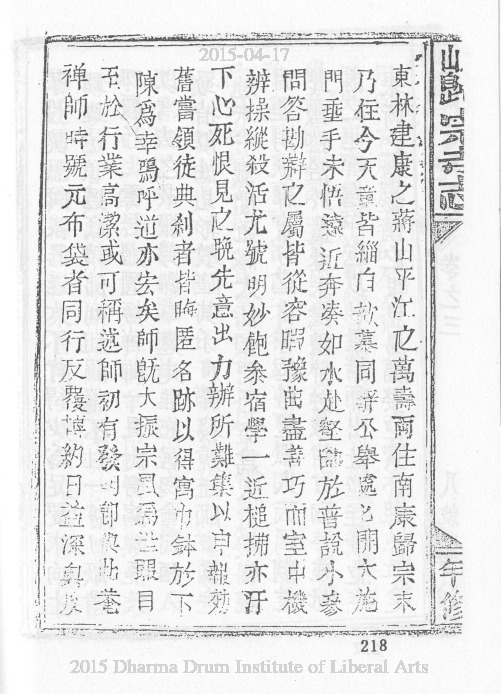 2015-04-17
山歸宗寺志
東林建康之蔣山平江之萬壽兩住南康歸宗末
乃住今天童皆緇白歆慕同辭公舉處之開大施
門垂手未悟遠近奔湊如水赴壑臨於普說小參
問答勘辯之屬皆從容暇豫曲盡善巧而室中機
辨操縱殺活尤號明妙飽參宿學一近槌拂亦汗
下心死恨見之晚先意出力辦所難集以申報效
舊嘗領徒典剎者皆晦匿名跡以得寓巾鉢於下
陳為幸嗚呼道亦宏矣師既大振宗風為世眼目
至於行業高潔或可稱述師初有發明即與此菴
禪師時號元布袋者同行反覆博約日益深奧及
年修
218
2015 Dharma Drum Institute of Liberal Arts